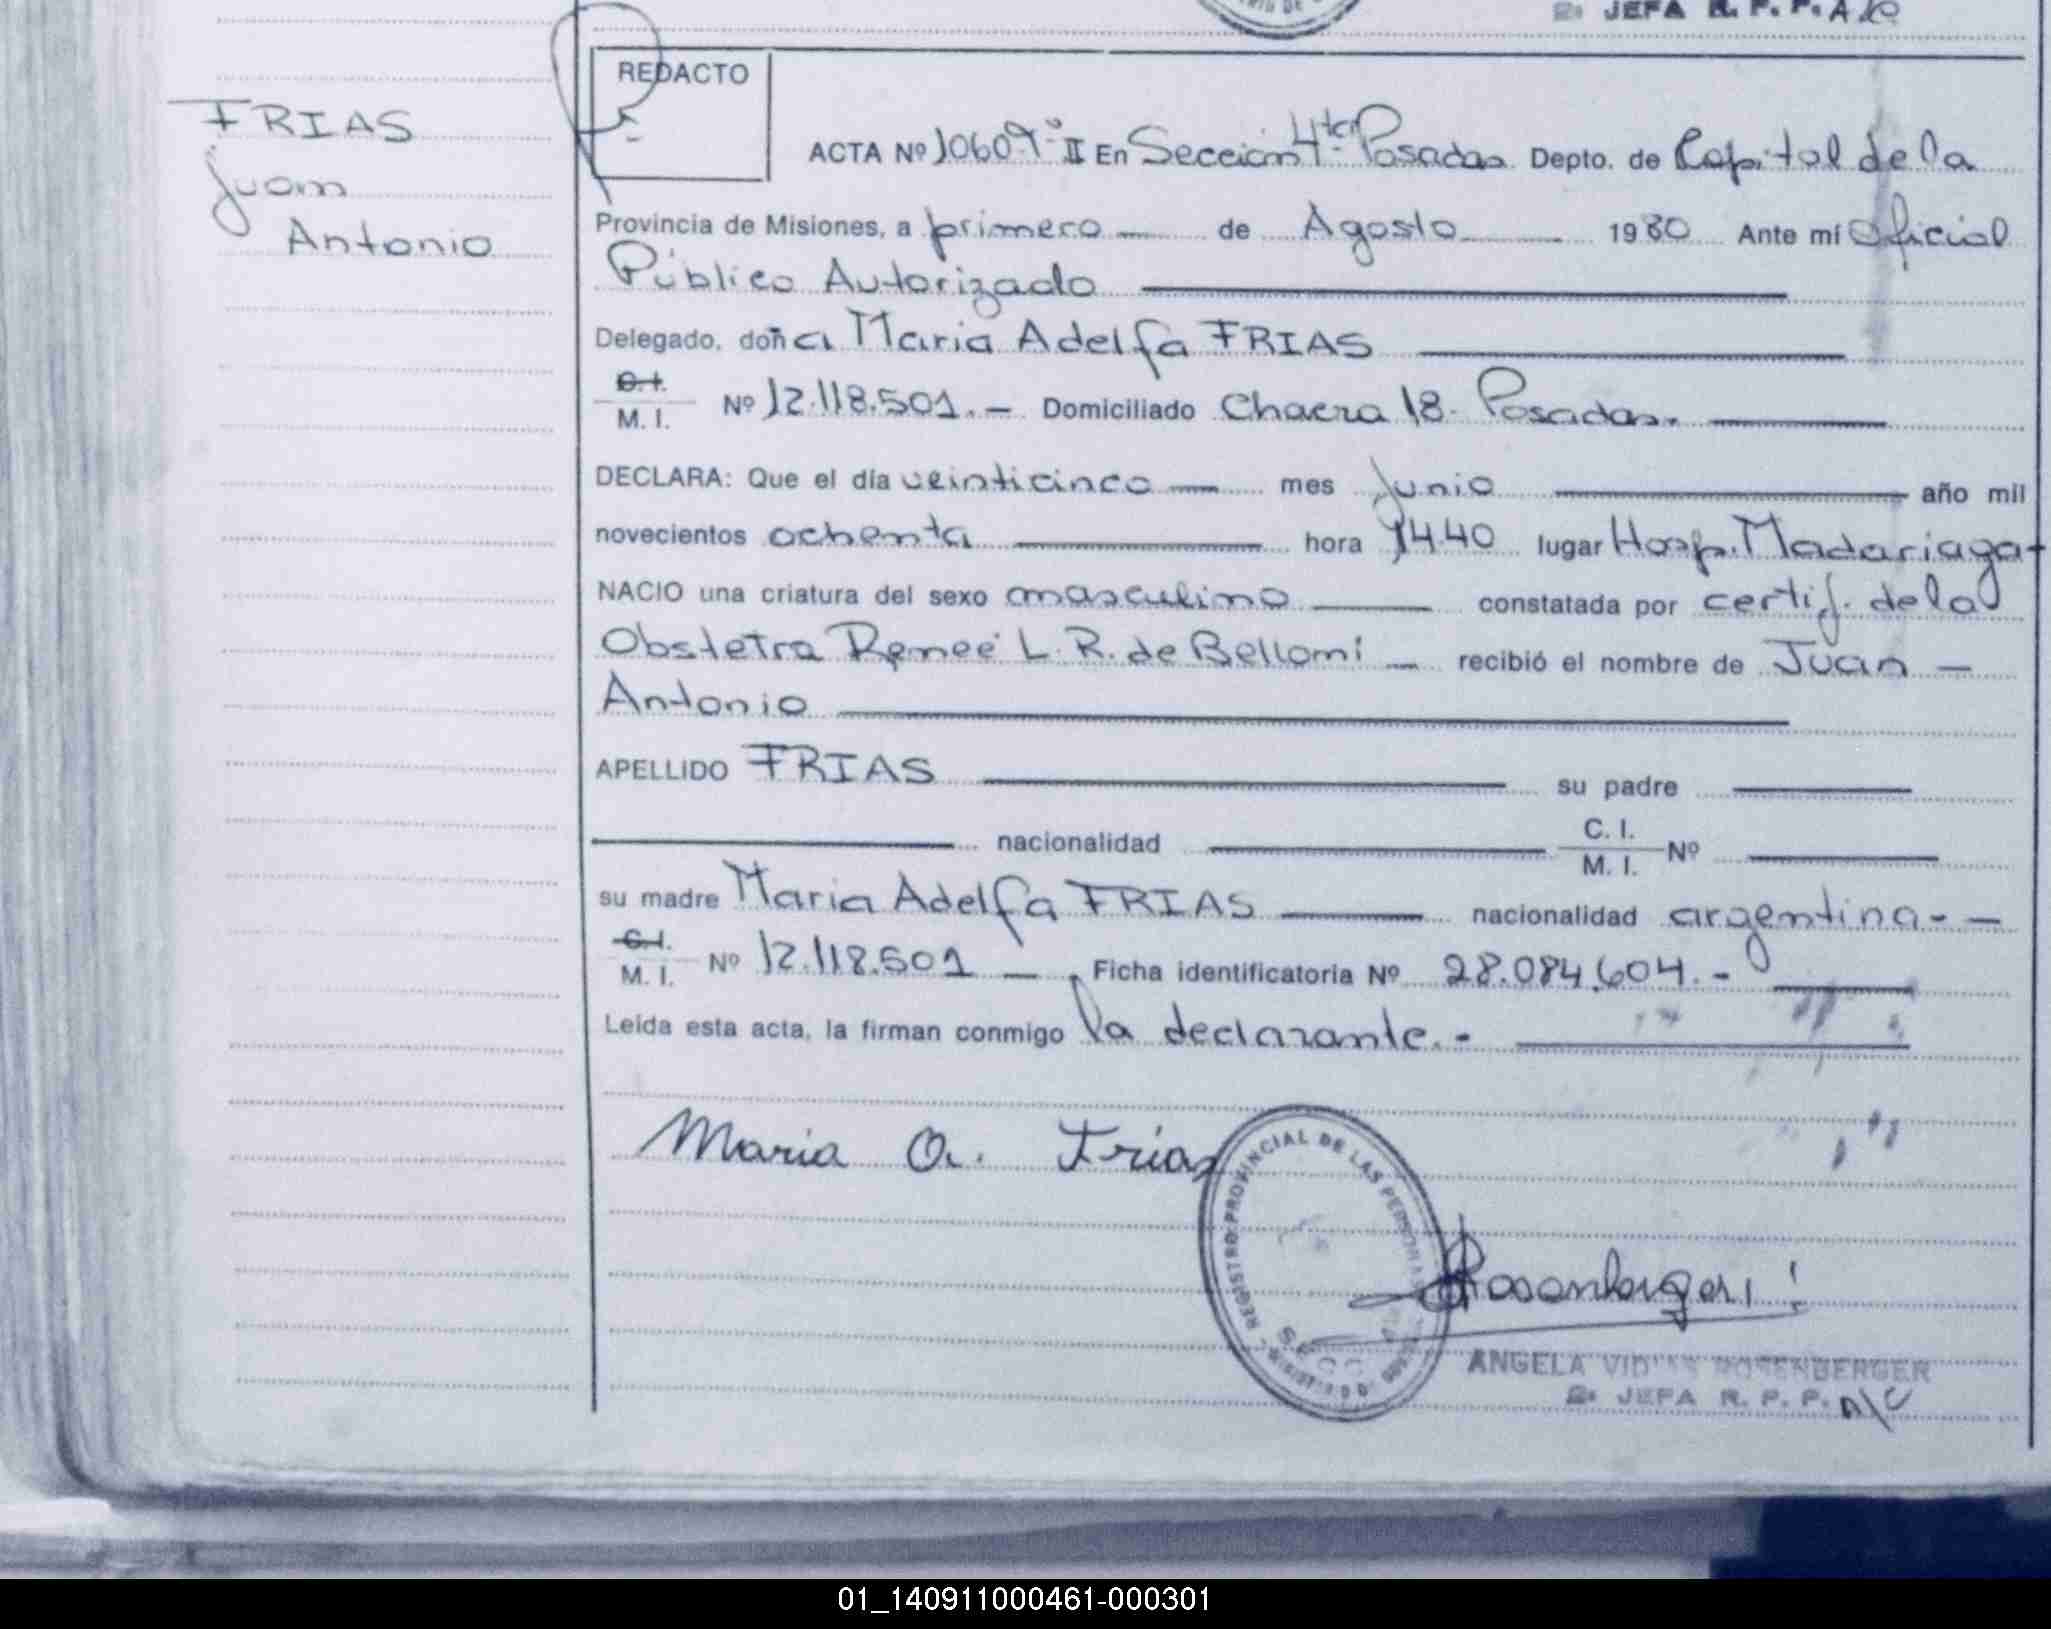 2: JEFA R. P. P. A/C
REDACTO
FRIAS
Juan
Antonio
ACTA Nº 10609 "II En Sección 4ta Posadas Depto. de Capital de la
Provincia de Misiones, a primero de Agosto 1980 Ante mí Oficial
Público Autorizado
Delegado, doña Maria Adelfa FRIAS
C.I.
M. I. Nº 12.118.501.- Domiciliado Chacra 18. Posadas.
DECLARA: Que el día veinticinco mes Junio año mil
novecientos ochenta hora 14.40 lugar Hosp. Madariaga
NACIO una criatura del sexo masculino constatada por certif. de la
Obstetra Reneé L. R. de Bellomi recibió el nombre de Juan
Antonio
APELLIDO FRIAS su padre
nacionalidad C. I.
M. I. Nº
su madre Maria Adelfa FRIAS nacionalidad argentina.-
C.I.
M. I. Nº 12.118.501 Ficha identificatoria Nº 28.084.604.-
Leída esta acta, la firman conmigo la declarante.-
Maria A. Frias
REGISTRO PROVINCIAL DE LAS PERSONAS
Rosenberger
ANGELA ROSENBERGER
2: JEFA R. P. P. A/C
01_140911000461-000301